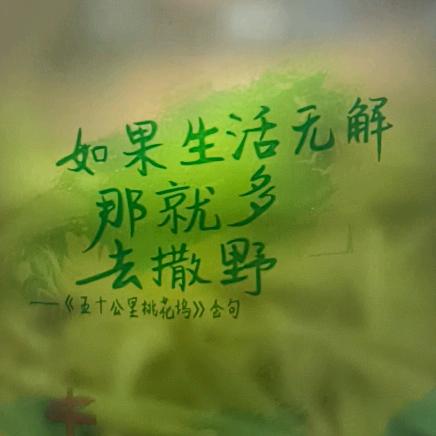 如果生活无解
那就多
去撒野
——《五十公里桃花坞》金句